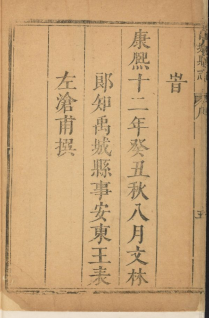 旹
康熙十二年癸丑秋八月文林
郎知禹城縣事安東王表
左滄甫撰